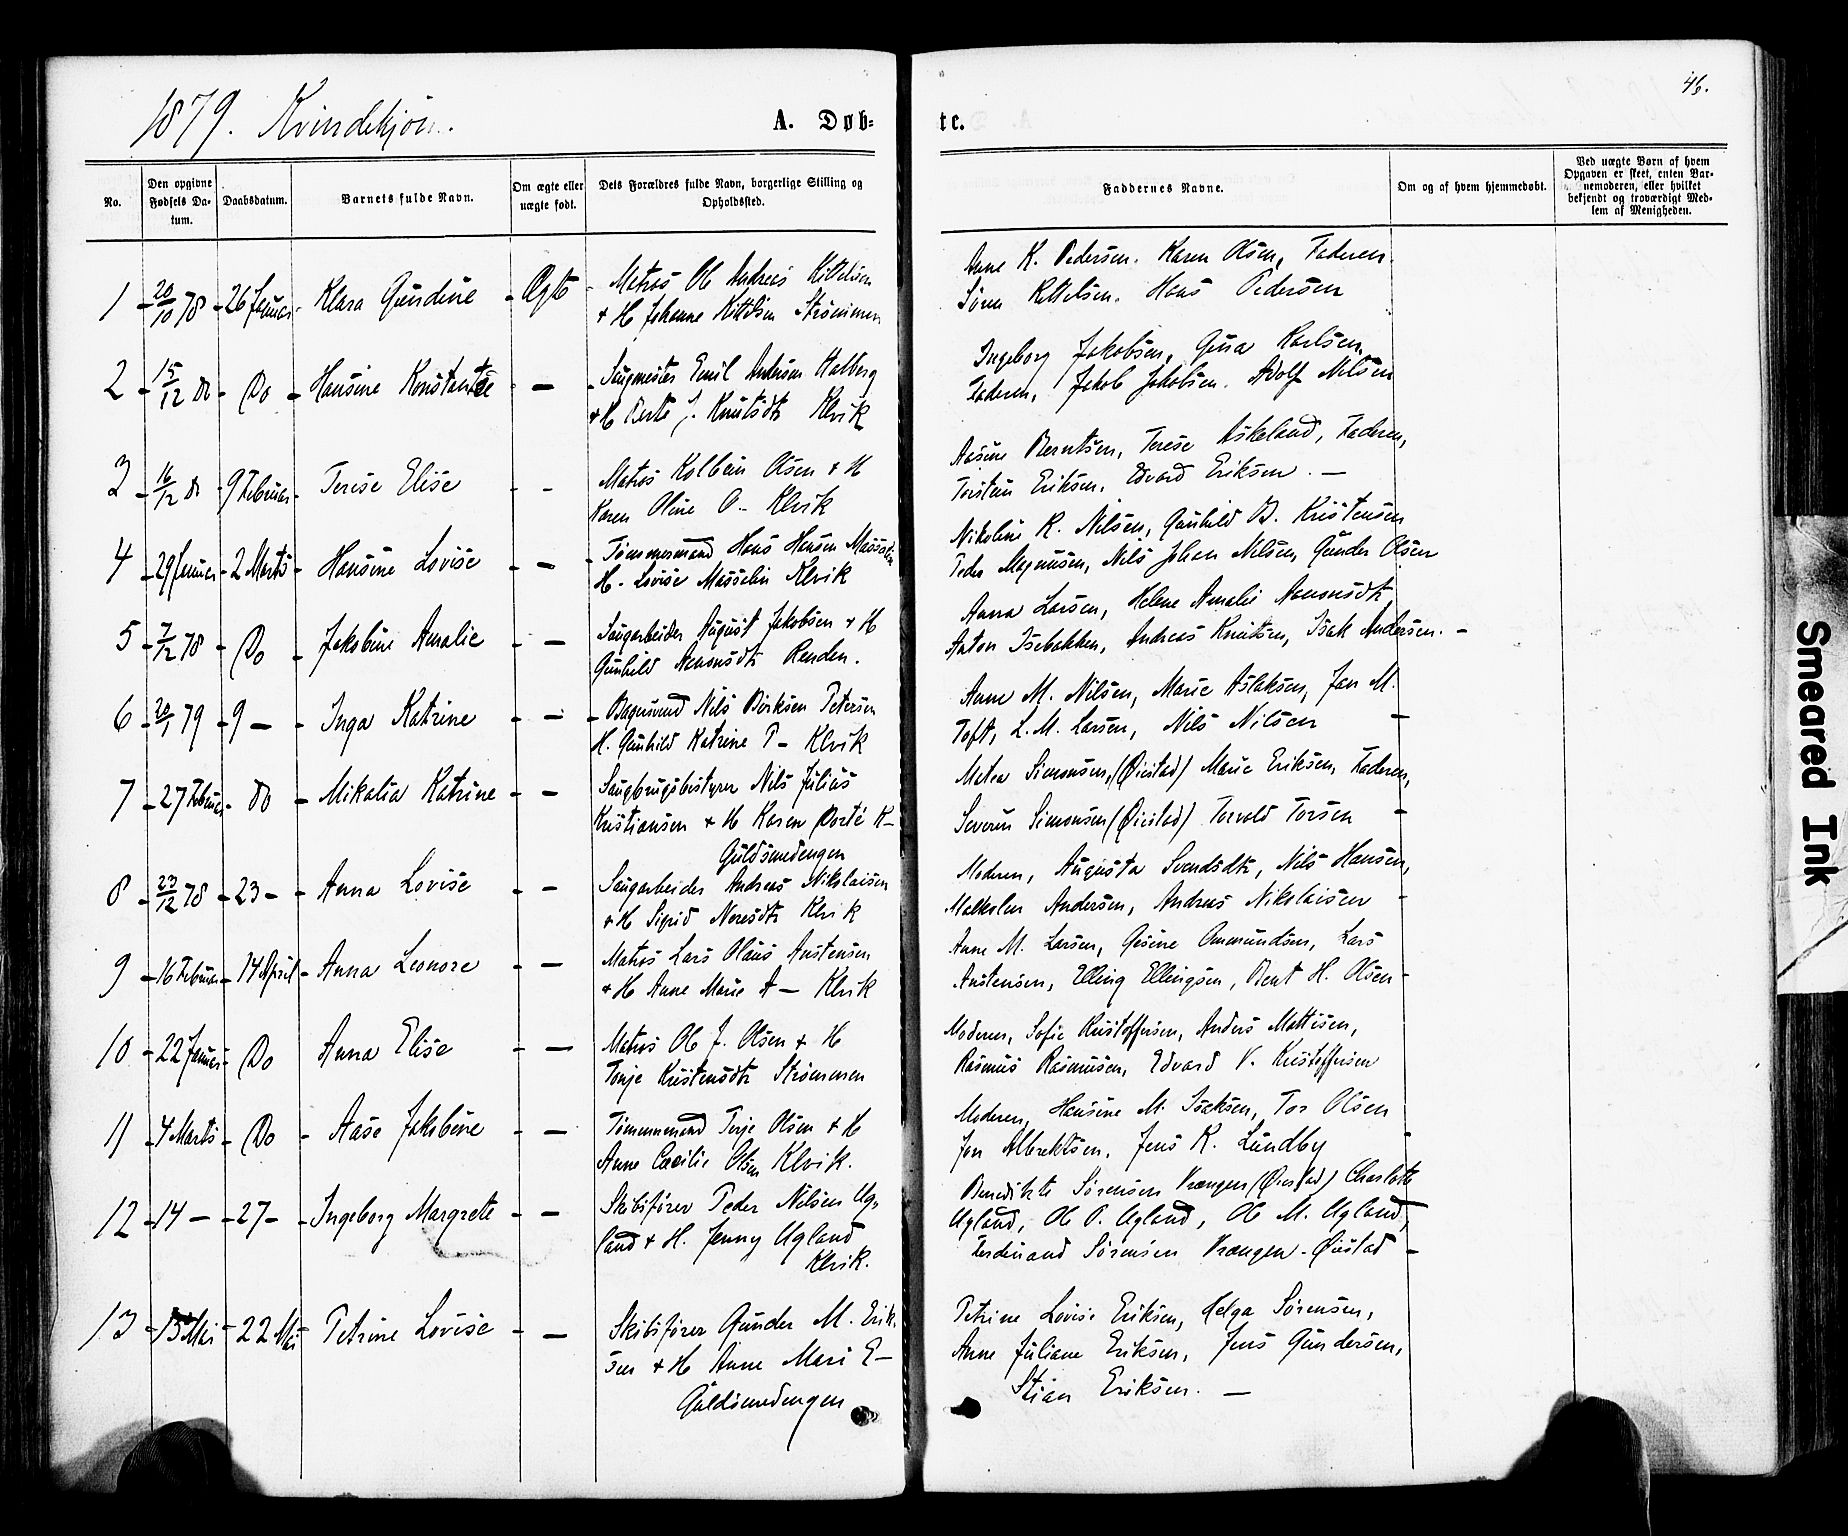 46.
1879. Kvindekjøn.
A. Døb-
te.
No.
Den opgivne Fødsels Da-tum.
Daabsdatum.
Barnets fulde Navn.
Om ægte eller uægte født.
Dets Forældres fulde Navn, borgerlige Stilling og Opholdssted.
Faddernes Navne.
Om og af hvem hjemmedøbt.
Ved uægte Børn af hvem Opgaven er skeet, enten Bar-nemoderen, eller hvilket bekjendt og troværdigt Med-lem af Menigheden.
1 - 20/10 78 - 26 Januar - Klara Gundine - Ægte - Matros Ole Andreas Kittelsen
+ H Johanne Kittelsen Strømmen
Anne K. Pedersen. Karen Olsen, Faderen.
Søren Kittelsen. Hans Pedersen
2 - 15/12 Do - Do - Hansine Konstantse - Saugmester Emil Andersen Halberg
+ H Berte J. Knutsdtr Klvik
Ingeborg Jakobsen, Gusa Karlsen,
Faderen, Jakob Jakobsen. Adolf Nilsen
3 - 16/12 Do - 9 Februar - Terese Elise - - Matros Kolbein Olsen + H
Karen Oline O - Klvik
Aasine Berntsen, Terese Askeland, Faderen,
Torstein Eriksen, Edvard Eriksen. -
4 - 29 Januar - 2 Marts - Hansine Lovise - - Tømmermand Hans Hansen
H. Lovise Masselin Klvik
Nikoline R. Nilsen, Gunhild B. Kristensen
Peder Magnusen, Nils Johan Nilsen, Gunder Olsen
5 - 7/12 78 - Do - Jakobine Amalie - - Saugarbeider August Jakobsen + H
Gunhild Aanonsdtr Renden.
Anna Larsen, Helene Amalie Aanonsdtr,
Anton Isebakken, Andreas Knutsen, Isak Andersen. -
6 - 20/1 79 - 9 - - Inga Katrine - - Bagersvend Nils Birksen Petersen
H. Gunhild Katrine P - Klvik
Anne M. Nilsen, Marie Aslaksen, Jan M.
Toft, L. M. Larsen, Nils Nilsen -
7 - 27 Februar - Do - Mikalia Katrine - - Saugbrugsbestyrer Nils Julius
Kristiansen + H Karen Dorte K -
Guldsmedengen
Metea Simonsen, (Øiestad) Marie Eriksen, Faderen,
Severin Simonsen (Øiestad) Torvald Torsen -
8 - 23/12 78 - 23 - - Anna Lovise - - Saugarbeider Andreas Nikolaisen
+ H Sigrid Neresdtr Klvik
Moderen, Augusta Svendsdtr, Nils Hansen,
Malkolm Andersen, Andreas Nikolaisen -
9 - 16 Februar - 14 April - Anna Leonore - - Matros Lars Olaus Austensen
+ H Anne Marie A - Klvik
Anne M. Larsen, Gesine Ommundsen, Lars
Austensen, Elling Ellingsen, Bent H. Olsen -
10 - 22 Januar - Do - Anna Elise - - Matros Ole J. Olsen + H
Tonje Kristensdtr Strømmen
Moderen, Sofie Kristoffersen, Anders Mattisen,
Rasmus Rasmussen, Edvard V. Kristoffersen
11 - 4 Marts - Do - Aase Jakobine - - Tømmermand Terje Olsen + H
Anne Cecilie Olsen Klvik.
Moderen, Hansine M. Isaksen, Tor Olsen
Jon Albrektsen, Jens K. Lundby -
12 - 14 - - 27 - - Ingeborg Margrete - - Skibsfører Peder Nilsen Ug-
land + H. Jenny Ugland
Klvik.
Benedikte Sørensen Vrængen (Øiestad) Charlotte
Ugland, Ole P. Ugland, Ole M. Ugland,
Ferdinand Sørensen Vrængen - Øiestad -
13 - 13 Mai - 22 Mai - Petrine Lovise - - Skibsfører Gunder M. Erik-
sen + H Anne Mari E -
Guldsmedengen
Petrine Lovise Eriksen, Helga Sørensen,
Anne Juliane Eriksen, Jens Gundersen,
Stian Eriksen. -
Smeared Ink